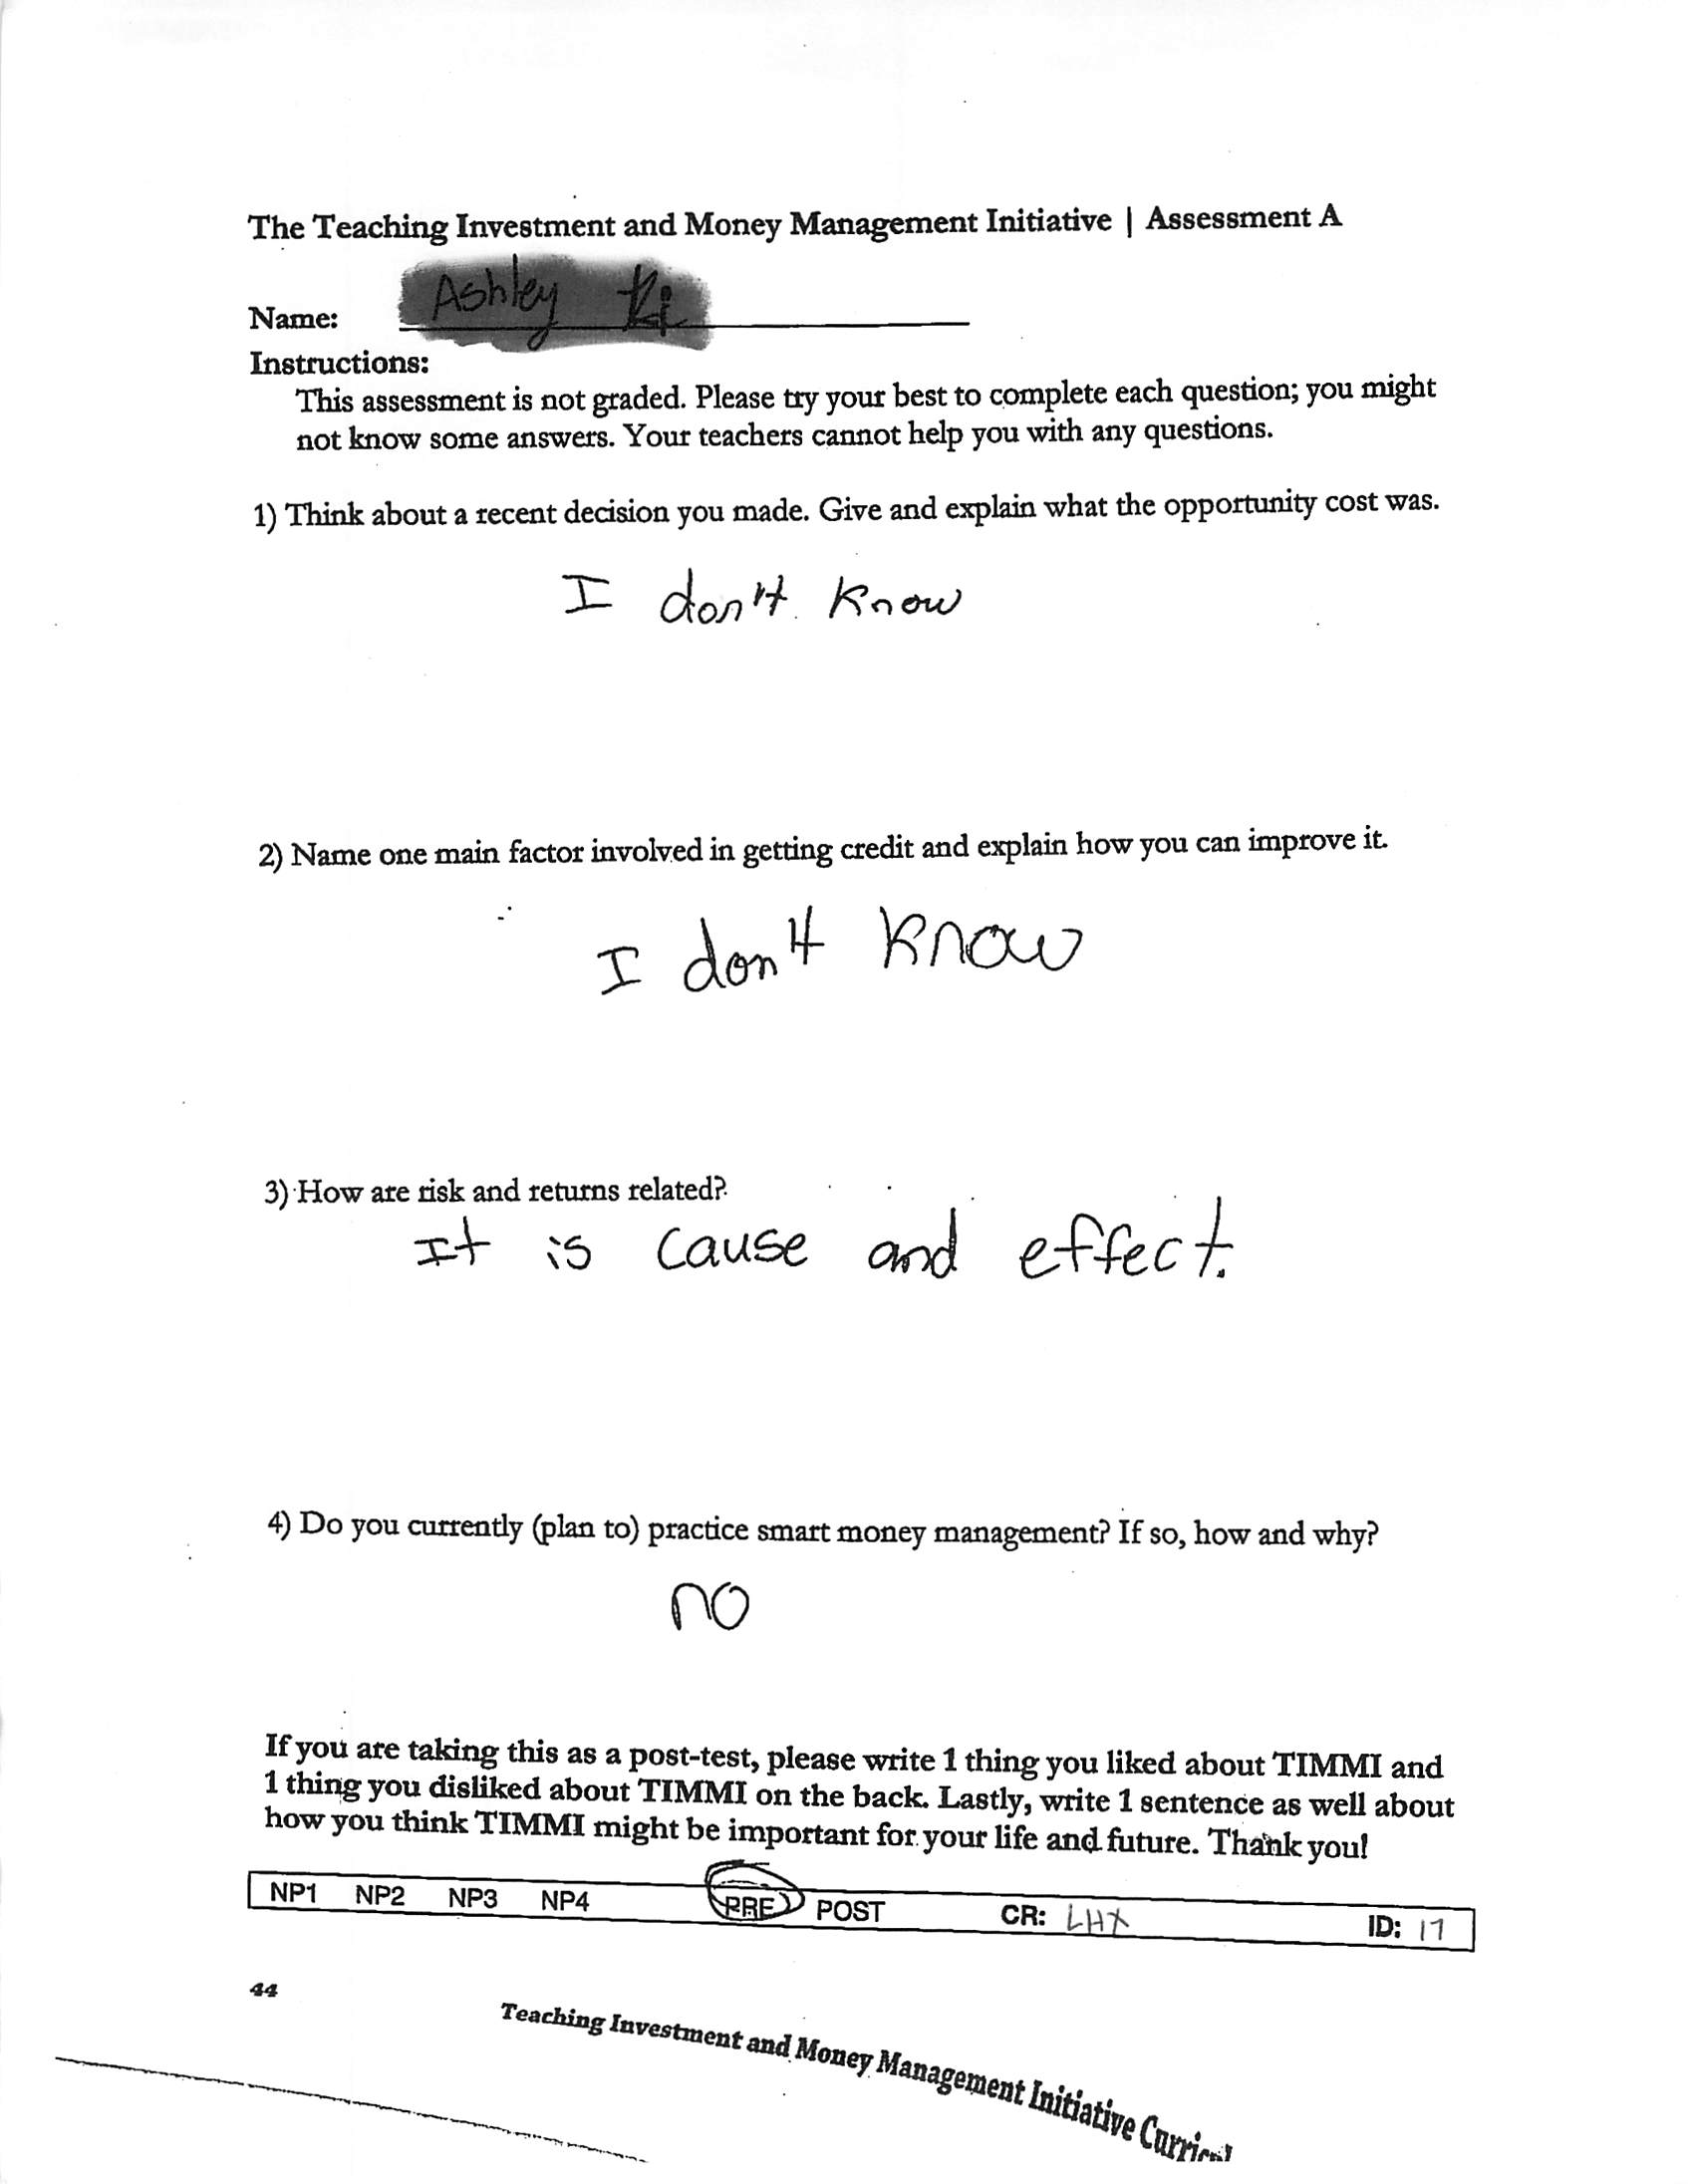 The Teaching Investment and Money Management Initiative | Assessment A
Name: Ashley Ki
Instructions:
This assessment is not graded. Please try your best to complete each question; you might
not know some answers. Your teachers cannot help you with any questions.
1) Think about a recent decision you made. Give and explain what the opportunity cost was.
I don't know
2) Name one main factor involved in getting credit and explain how you can improve it.
I don't know
3) How are risk and returns related?
It is cause and effect.
4) Do you currently (plan to) practice smart money management? If so, how and why?
no
If you are taking this as a post-test, please write 1 thing you liked about TIMMI and
1 thing you disliked about TIMMI on the back. Lastly, write 1 sentence as well about
how you think TIMMI might be important for your life and future. Thank you!
NP1 NP2 NP3 NP4 PRE POST CR: LHX ID: 17
44
Teaching Investment and Money Management Initiative